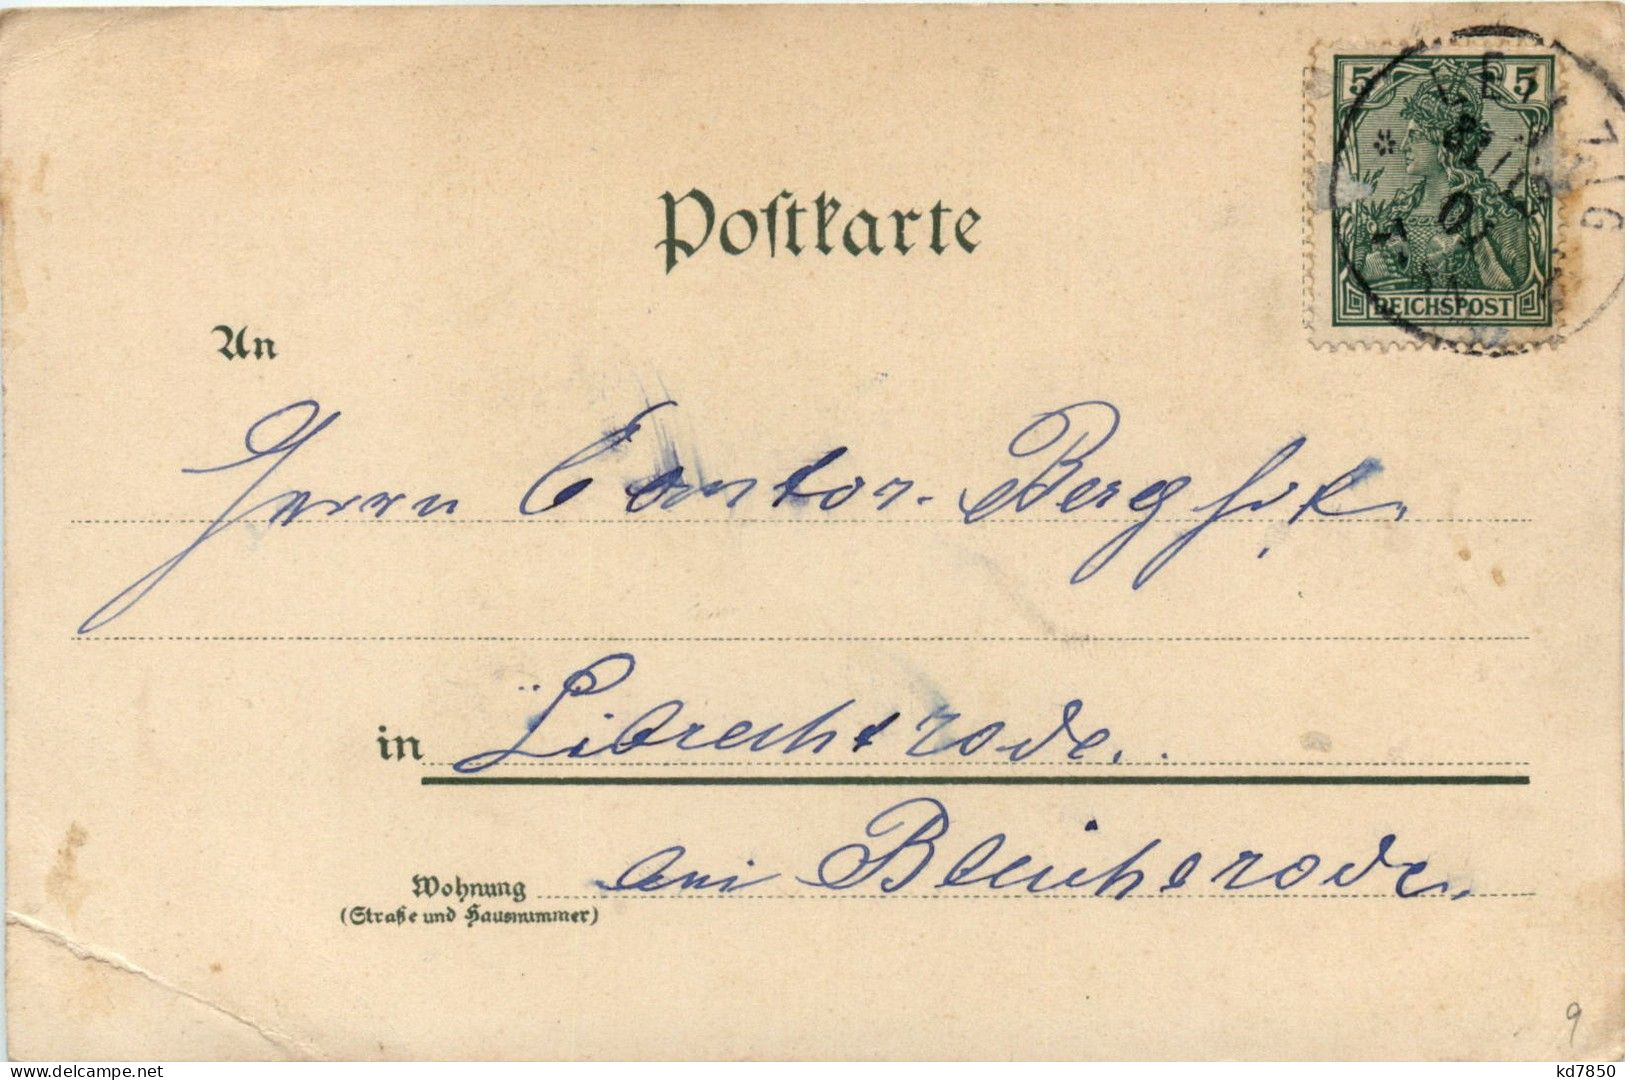 Postkarte
5 5
LEIPZIG
REICHSPOST
An
Herrn Cantor
in Librechtrode.
Wohnung bei Bleicherode.
(Straße und Hausnummer)
9
delcampe.net
kd7850